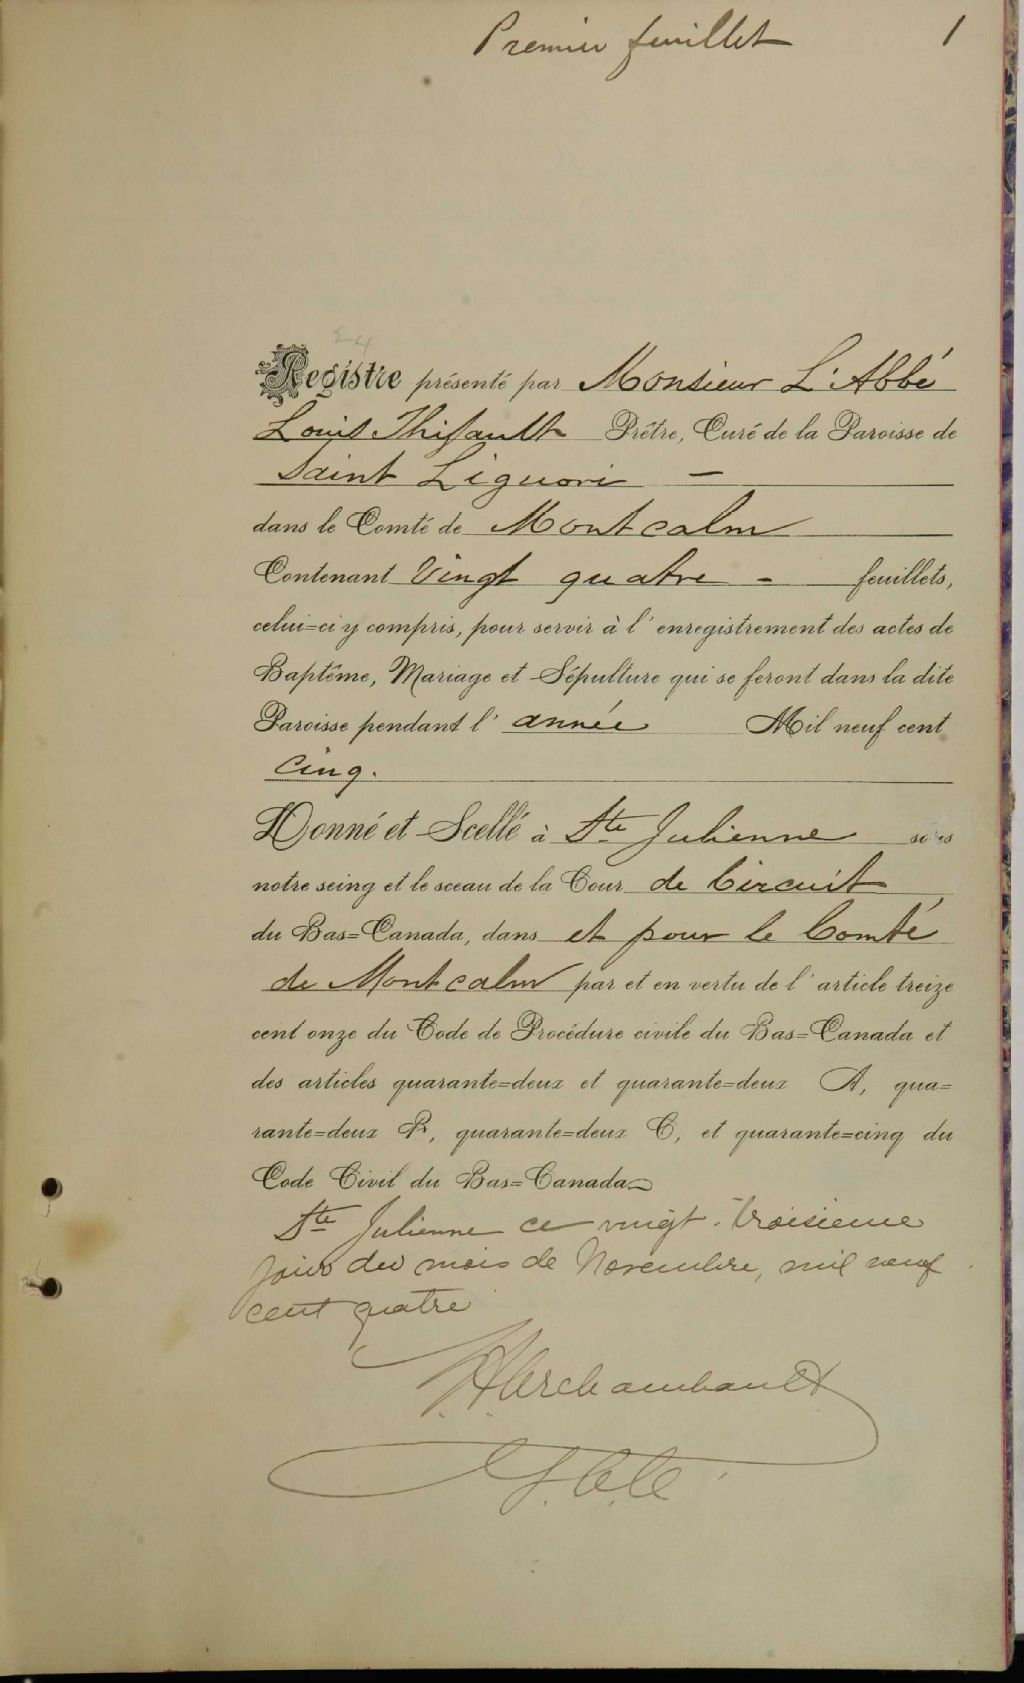 Premier feuillet 1
24
Registre présenté par Monsieur L'Abbé
Louis Thifault Prêtre, Curé de la Paroisse de
Saint Liguori —
dans le Comté de Montcalm
Contenant Vingt quatre - feuillets,
celui=ci y compris, pour servir à l'enregistrement des actes de
Baptême, Mariage et Sépulture qui se feront dans la dite
Paroisse pendant l'année Mil neuf cent
cinq.
Donné et Scellé à Ste Julienne sous
notre seing et le sceau de la Cour de Circuit
du Bas=Canada, dans et pour le Comté
de Montcalm par et en vertu de l'article treize
cent onze du Code de Procédure civile du Bas=Canada et
des articles quarante=deux et quarante=deux A, qua=
rante=deux B, quarante=deux C, et quarante=cinq du
Code Civil du Bas=Canada
Ste Julienne ce vingt-troisieme
jour du mois de Novembre, mil neuf
cent quatre
Archambault